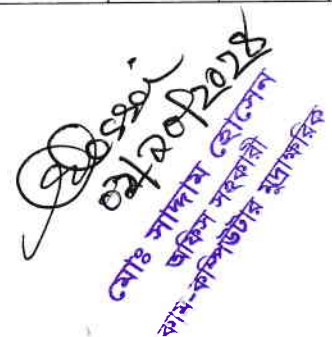 ০২/১০/২০২৪
মোঃ সাদ্দাম হোসেন
অফিস সহকারী
কাম-কম্পিউটার মুদ্রাক্ষরিক